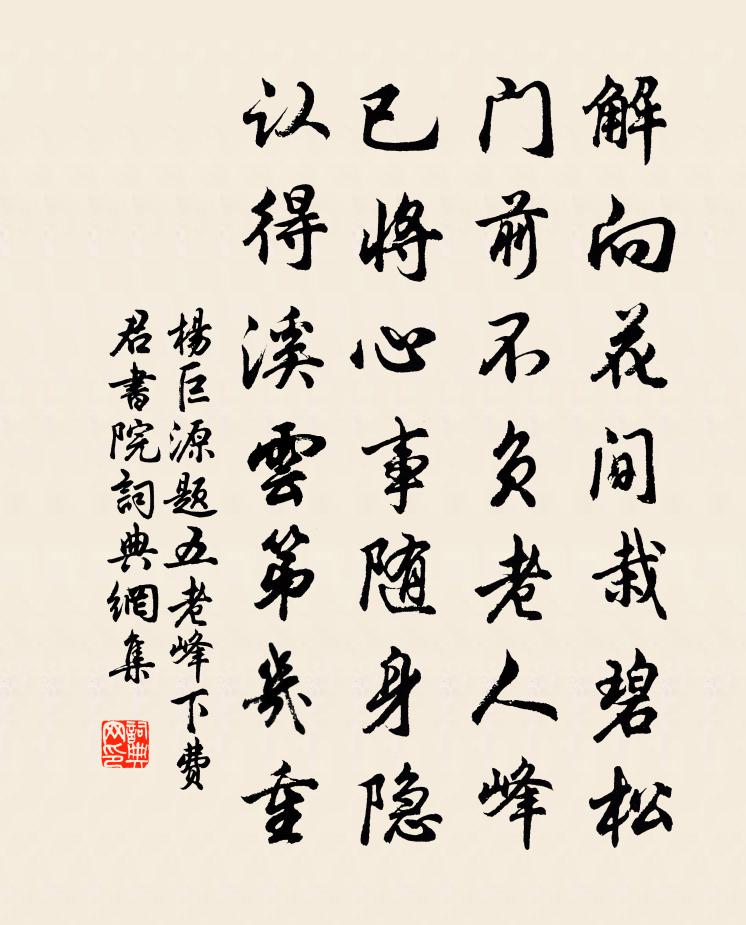 解向花间栽碧松
门前不负老人峰
已将心事随身隐
认得溪雲第幾重
楊巨源题五老峰下费
君書院詞典網集
詞典网印